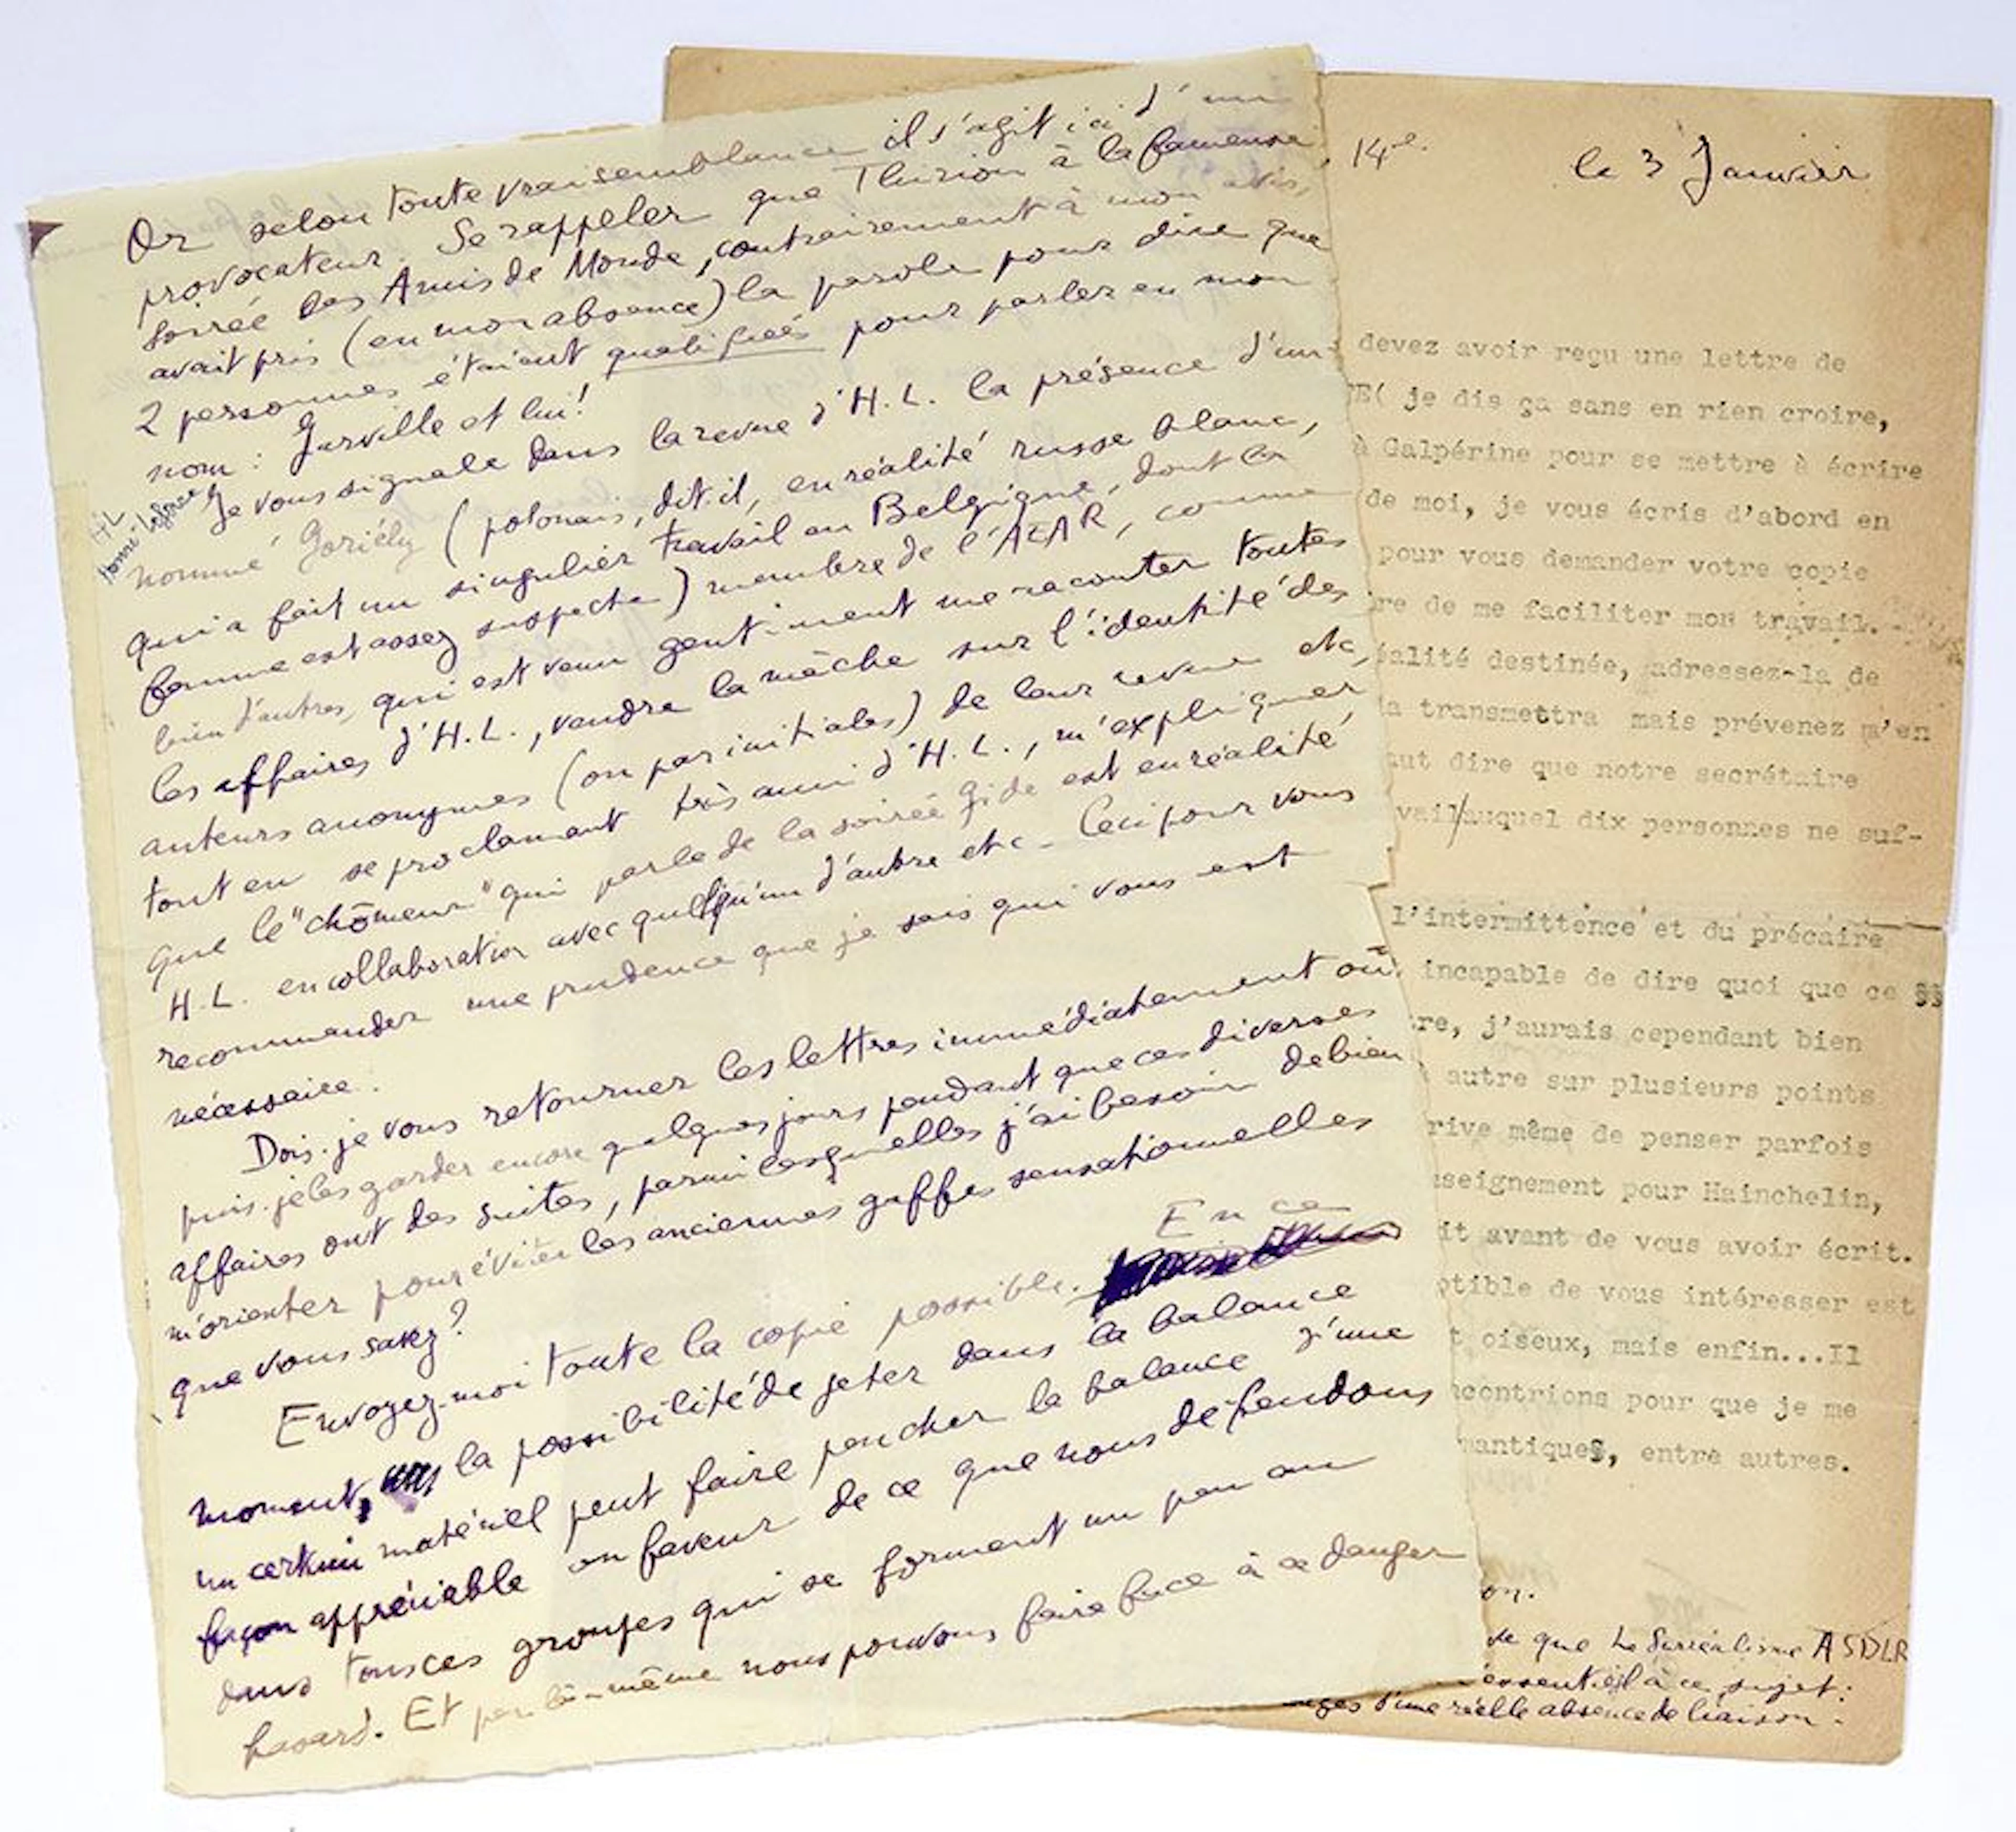 Or selon toute vraisemblance il s'agit ici d'un
provocateur. Se rappeler que Thirion à la fameuse
soirée des Amis de Monde, contrairement à mon avis,
avait pris (en mon absence) la parole pour dire que
2 personnes étaient qualifiées pour parler en mon
nom : Jurville et lui!
Je vous signale dans la revue d'H.L. la présence d'un
H L
nommé Goriély (polonais, dit-il, en réalité russe blanc,
qui a fait un singulier travail en Belgique, dont la
femme est assez suspecte) membre de l'AEAR, comme
bien d'autres, qui est venu gentiment me raconter toutes
les affaires d'H.L., vendre la mèche sur l'identité des
auteurs anonymes (ou par initiales) de leur revue etc,
tout en se proclamant très ami d'H.L., m'expliquer
que le "chômeur" qui parle de la soirée Gide est en réalité
H.L. en collaboration avec quelqu'un d'autre etc - Ceci pour vous
recommander une prudence que je sais qui vous est
nécessaire.
Dois-je vous retourner les lettres immédiatement où
puis-je les garder encore quelques jours pendant que ces diverses
affaires ont des suites, parmi lesquelles j'ai besoin de bien
m'orienter pour éviter les anciennes gaffes sensationnelles
que vous savez?
Envoyez-moi toute la copie possible. En ce
moment, la possibilité de jeter dans la balance
un certain matériel peut faire pencher la balance d'une
façon appréciable en faveur de ce que nous défendons
dans tous ces groupes qui se forment un peu au
hasard. Et par là-même nous pouvons faire face à ce danger
14e. le 3 Janvier
devez avoir reçu une lettre de
E( je dis ça sans en rien croire,
à Galpérine pour se mettre à écrire
de moi, je vous écris d'abord en
pour vous demander votre copie
re de me faciliter mon travail.-
éalité destinée, adressez-la de
la transmettra mais prévenez m'en
aut dire que notre secrétaire
vail/auquel dix personnes ne suf-
l'intermittence et du précaire
incapable de dire quoi que ce
re, j'aurais cependant bien
autre sur plusieurs points
rive même de penser parfois
nseignement pour Hainchelin,
it avant de vous avoir écrit.
ptible de vous intéresser est
t oiseux, mais enfin...Il
ncontrions pour que je me
mantiques, entre autres.
on.
de que Le Surréalisme ASDLR
essentiel à ce sujet:
d'une réelle absence de liaison.